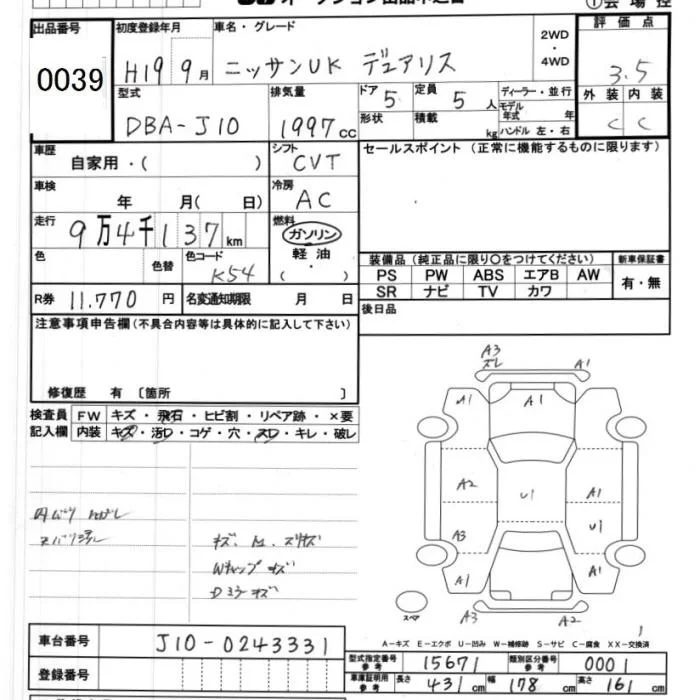 出品番号 初度登録年月 車名・グレード 2WD・4WD 評価点
0039 H19 9月 ニッサンUK デュアリス 3.5
型式 排気量 ドア 定員 ディーラー・並行 外装 内装
DBA-J10 1997cc 5 5人 モデル年式 年 C C
形状 積載 kg ハンドル 左・右
車歴 シフト セールスポイント(正常に機能するものに限ります)
自家用・( ) CVT
車検 年 月( 日) 冷房 AC
走行 9万4千137km 燃料 ガソリン
軽油
色 色替 色コード K54 ( ・ )
装備品(純正品に限り○をつけてください) 新車保証書
PS PW ABS エアB AW 有・無
SR ナビ TV カワ
R券 11.770円 名変通知期限 月 日 後日品
注意事項申告欄(不具合内容等は具体的に記入して下さい)
修復歴 有 〔箇所 〕
検査員 FW キズ・飛石・ヒビ割・リペア跡・×要
記入欄 内装 キズ・汚レ・コゲ・穴・スレ・キレ・破レ
A3 ズレ A1
A1 A1
A2 U1 A1
A3 U1
A1 A1
スペア A3 A2
Wキャップ キズ
Dミラーキズ
A-キズ E-エクボ U-凹み W-補修跡 S-サビ C-腐食 XX-交換済
1
車台番号 J10-0243331
型式指定番号 参考 15671 類別区分番号 参考 0001
登録番号 車庫証明用 参考 長さ 431cm 幅 178cm 高さ 161cm